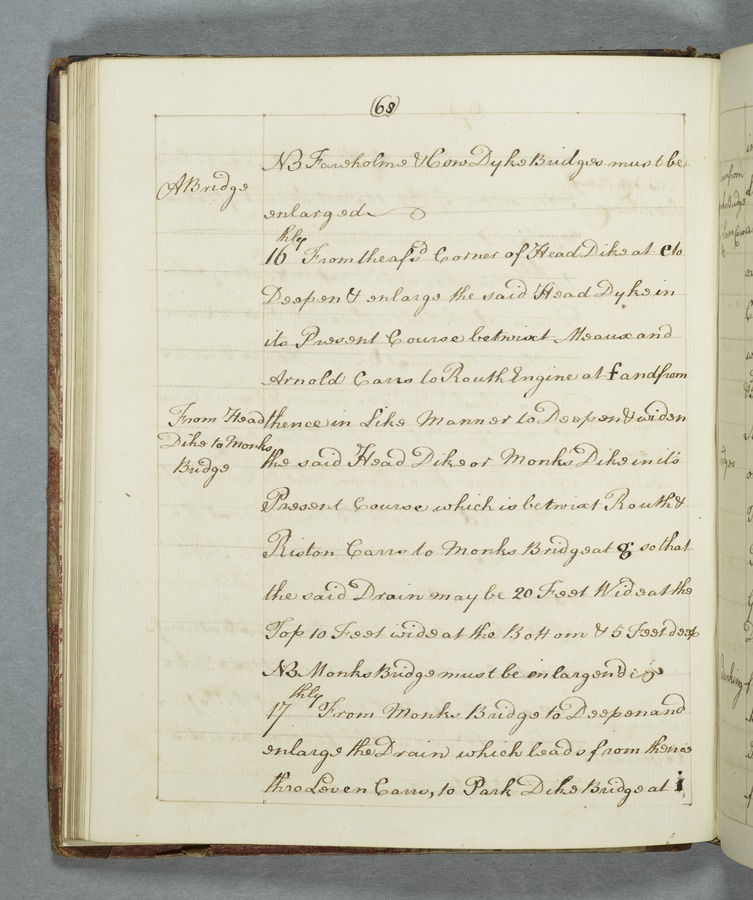 (68)
NB Fareholme & Cow Dyke Bridges must be
A Bridge
enlarged
16thly From the afsd Corner of Head Dike at e to
Deepen & enlarge the said Head Dyke in
its Present Course betwixt Meaux and
Arnold Carrs to Routh Engine at f and from
From Head
Dike to Monks
Bridge
thence in Like Manner to Deepen & widen
the said Head Dike or Monks Dike in its
Present Course which is betwixt Routh &
Riston Carrs to Monks Bridge at g so that
the said Drain may be 20 Feet Wide at the
Top 10 Feet wide at the Bottom & 5 Feet deep
NB Monks Bridge must be enlargend
17thly From Monks Bridge to Deepen and
enlarge the Drain which leads from thence
thro Leven Carrs, to Park Dike Bridge at i